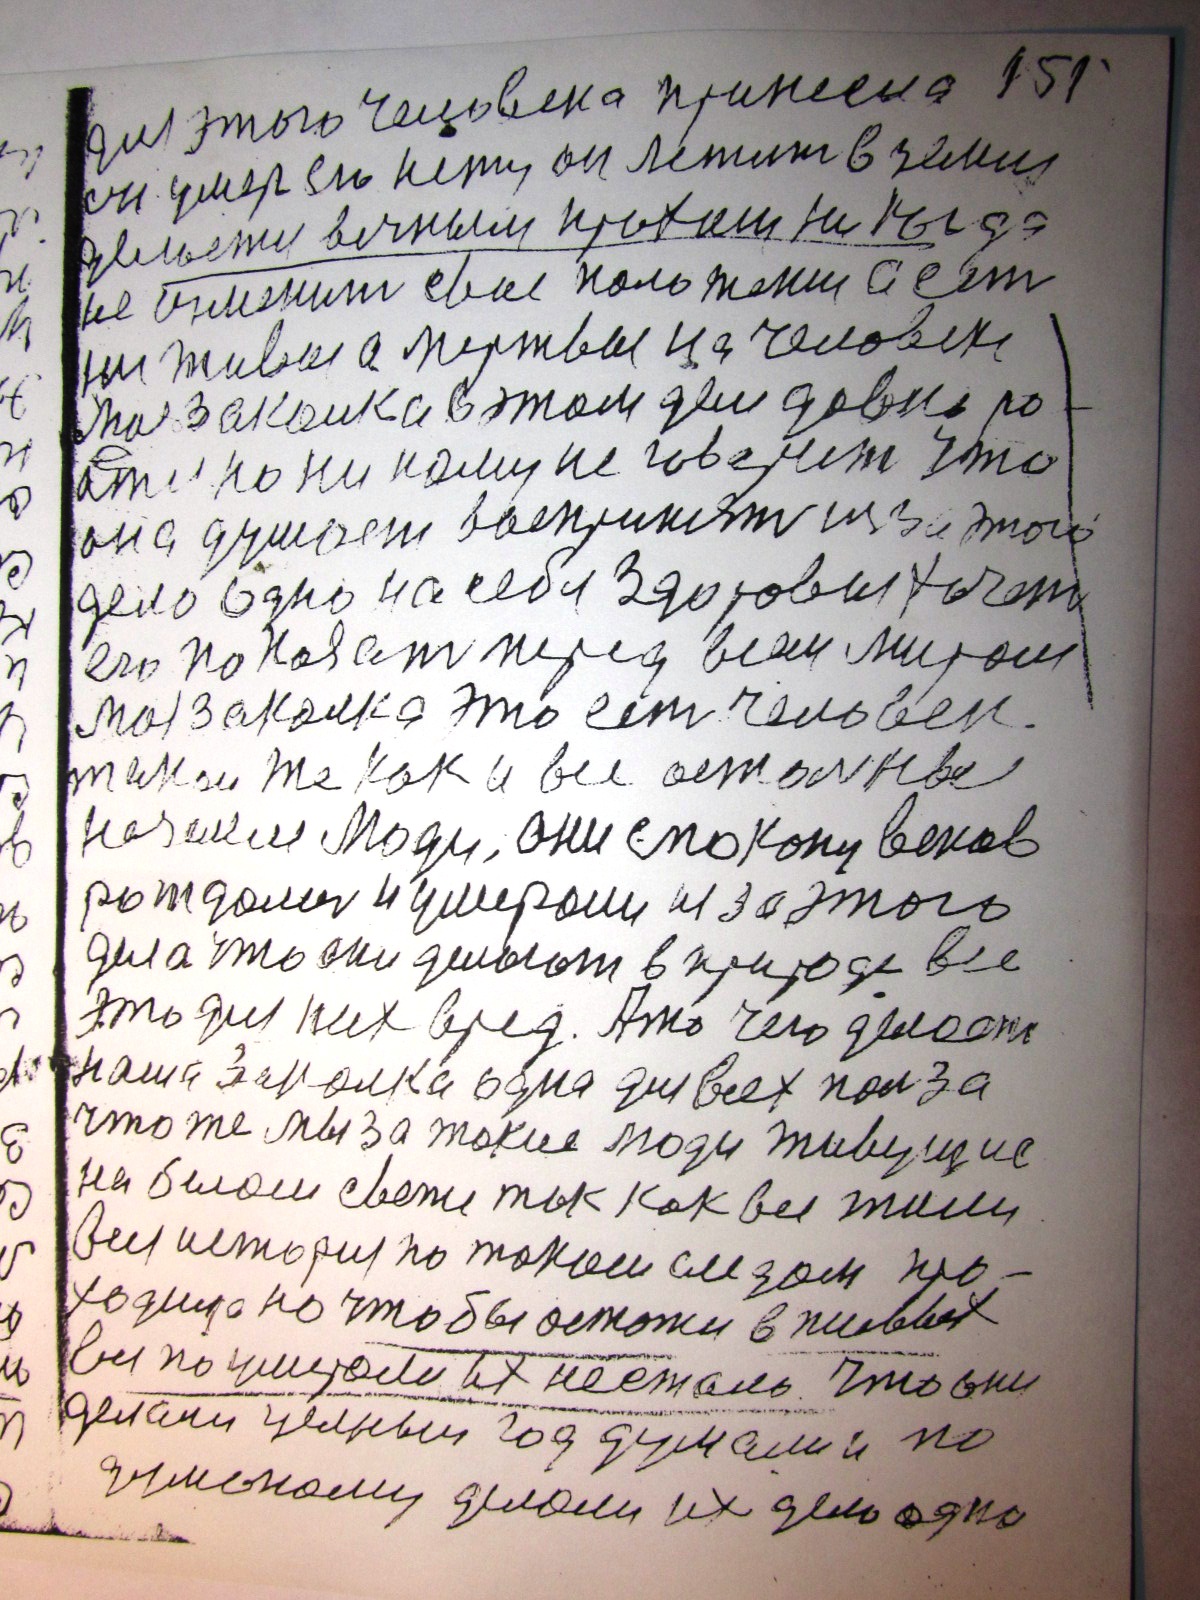 для этого человека принесла 151
он умер его нету он лежит в земли
вечным прахом ни когда
не изменит свое положении а ест
ни живым а мертвым на человек
моя закалка в этом деле давно ро-
но ни кому не говорит что
она думает воспринят из за этого
дело одно на себя здоровья хочет
его показат перед всем миром
моя закалка это ест человек
такой же как и все осталные
на земле люди, они спокону веков
рождалис и умерали из за этого
дела что они делают в природе все
это для них вред. А то чего делает
наша закалка одна для всех полза
что же мы за такие люди живущие
на белом свети так как все жили
вся история по таком следом про-
ходила но чтобы остатся в живых
все по умерали их нестало что они
делали целный год думали и по
думаному делали их дело одно